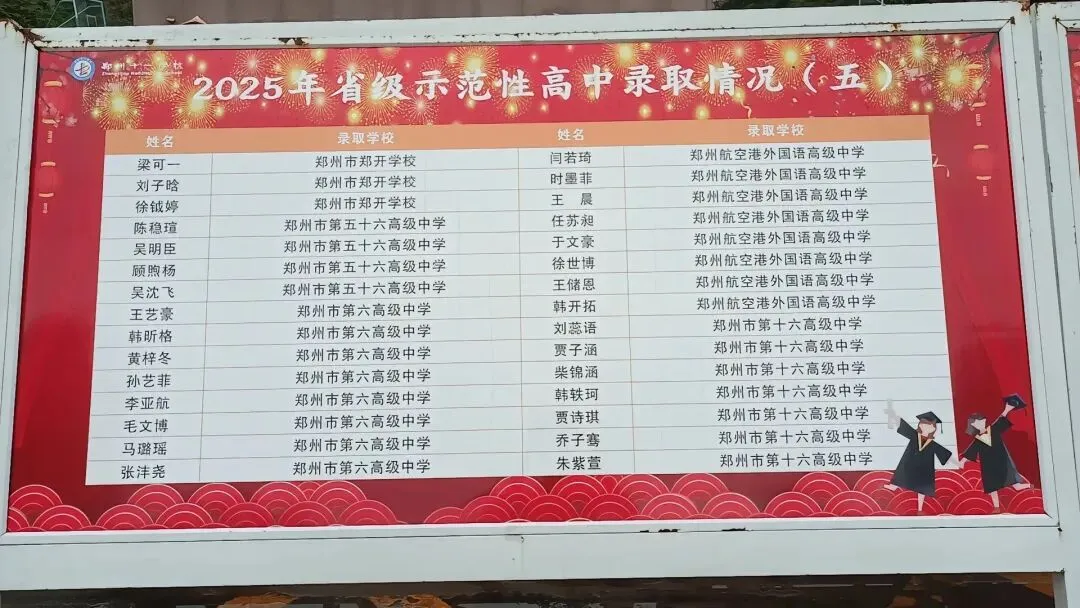 郑州十一学校
2025年省级示范性高中录取情况（五）
姓名 录取学校 姓名 录取学校
梁可一 郑州市郑开学校 闫若琦 郑州航空港外国语高级中学
刘子晗 郑州市郑开学校 时墨菲 郑州航空港外国语高级中学
徐钺婷 郑州市郑开学校 王 晨 郑州航空港外国语高级中学
陈稳瑄 郑州市第五十六高级中学 任苏昶 郑州航空港外国语高级中学
吴明臣 郑州市第五十六高级中学 于文豪 郑州航空港外国语高级中学
顾煦杨 郑州市第五十六高级中学 徐世博 郑州航空港外国语高级中学
吴沈飞 郑州市第五十六高级中学 王储恩 郑州航空港外国语高级中学
王艺豪 郑州市第六高级中学 韩开拓 郑州航空港外国语高级中学
韩昕格 郑州市第六高级中学 刘蕊语 郑州市第十六高级中学
黄梓冬 郑州市第六高级中学 贾子涵 郑州市第十六高级中学
孙艺菲 郑州市第六高级中学 柴锦涵 郑州市第十六高级中学
李亚航 郑州市第六高级中学 韩轶珂 郑州市第十六高级中学
毛文博 郑州市第六高级中学 贾诗琪 郑州市第十六高级中学
马璐瑶 郑州市第六高级中学 乔子骞 郑州市第十六高级中学
张沣尧 郑州市第六高级中学 朱紫萱 郑州市第十六高级中学